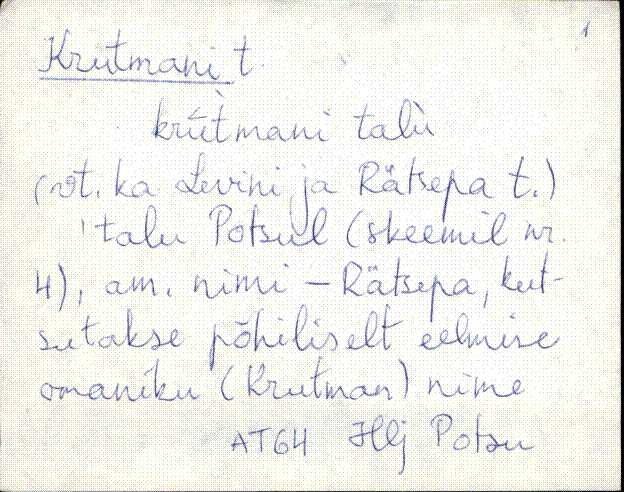 1
Krutmani t.
krùtmani talù
(vt. ka Levini ja Rätsepa t.)
'talu Potsul (skeemil nr.
4), am. nimi – Rätsepa, kut-
sutakse põhiliselt eelmise
omaniku (Krutman) nime
AT64 Hlj Potsu